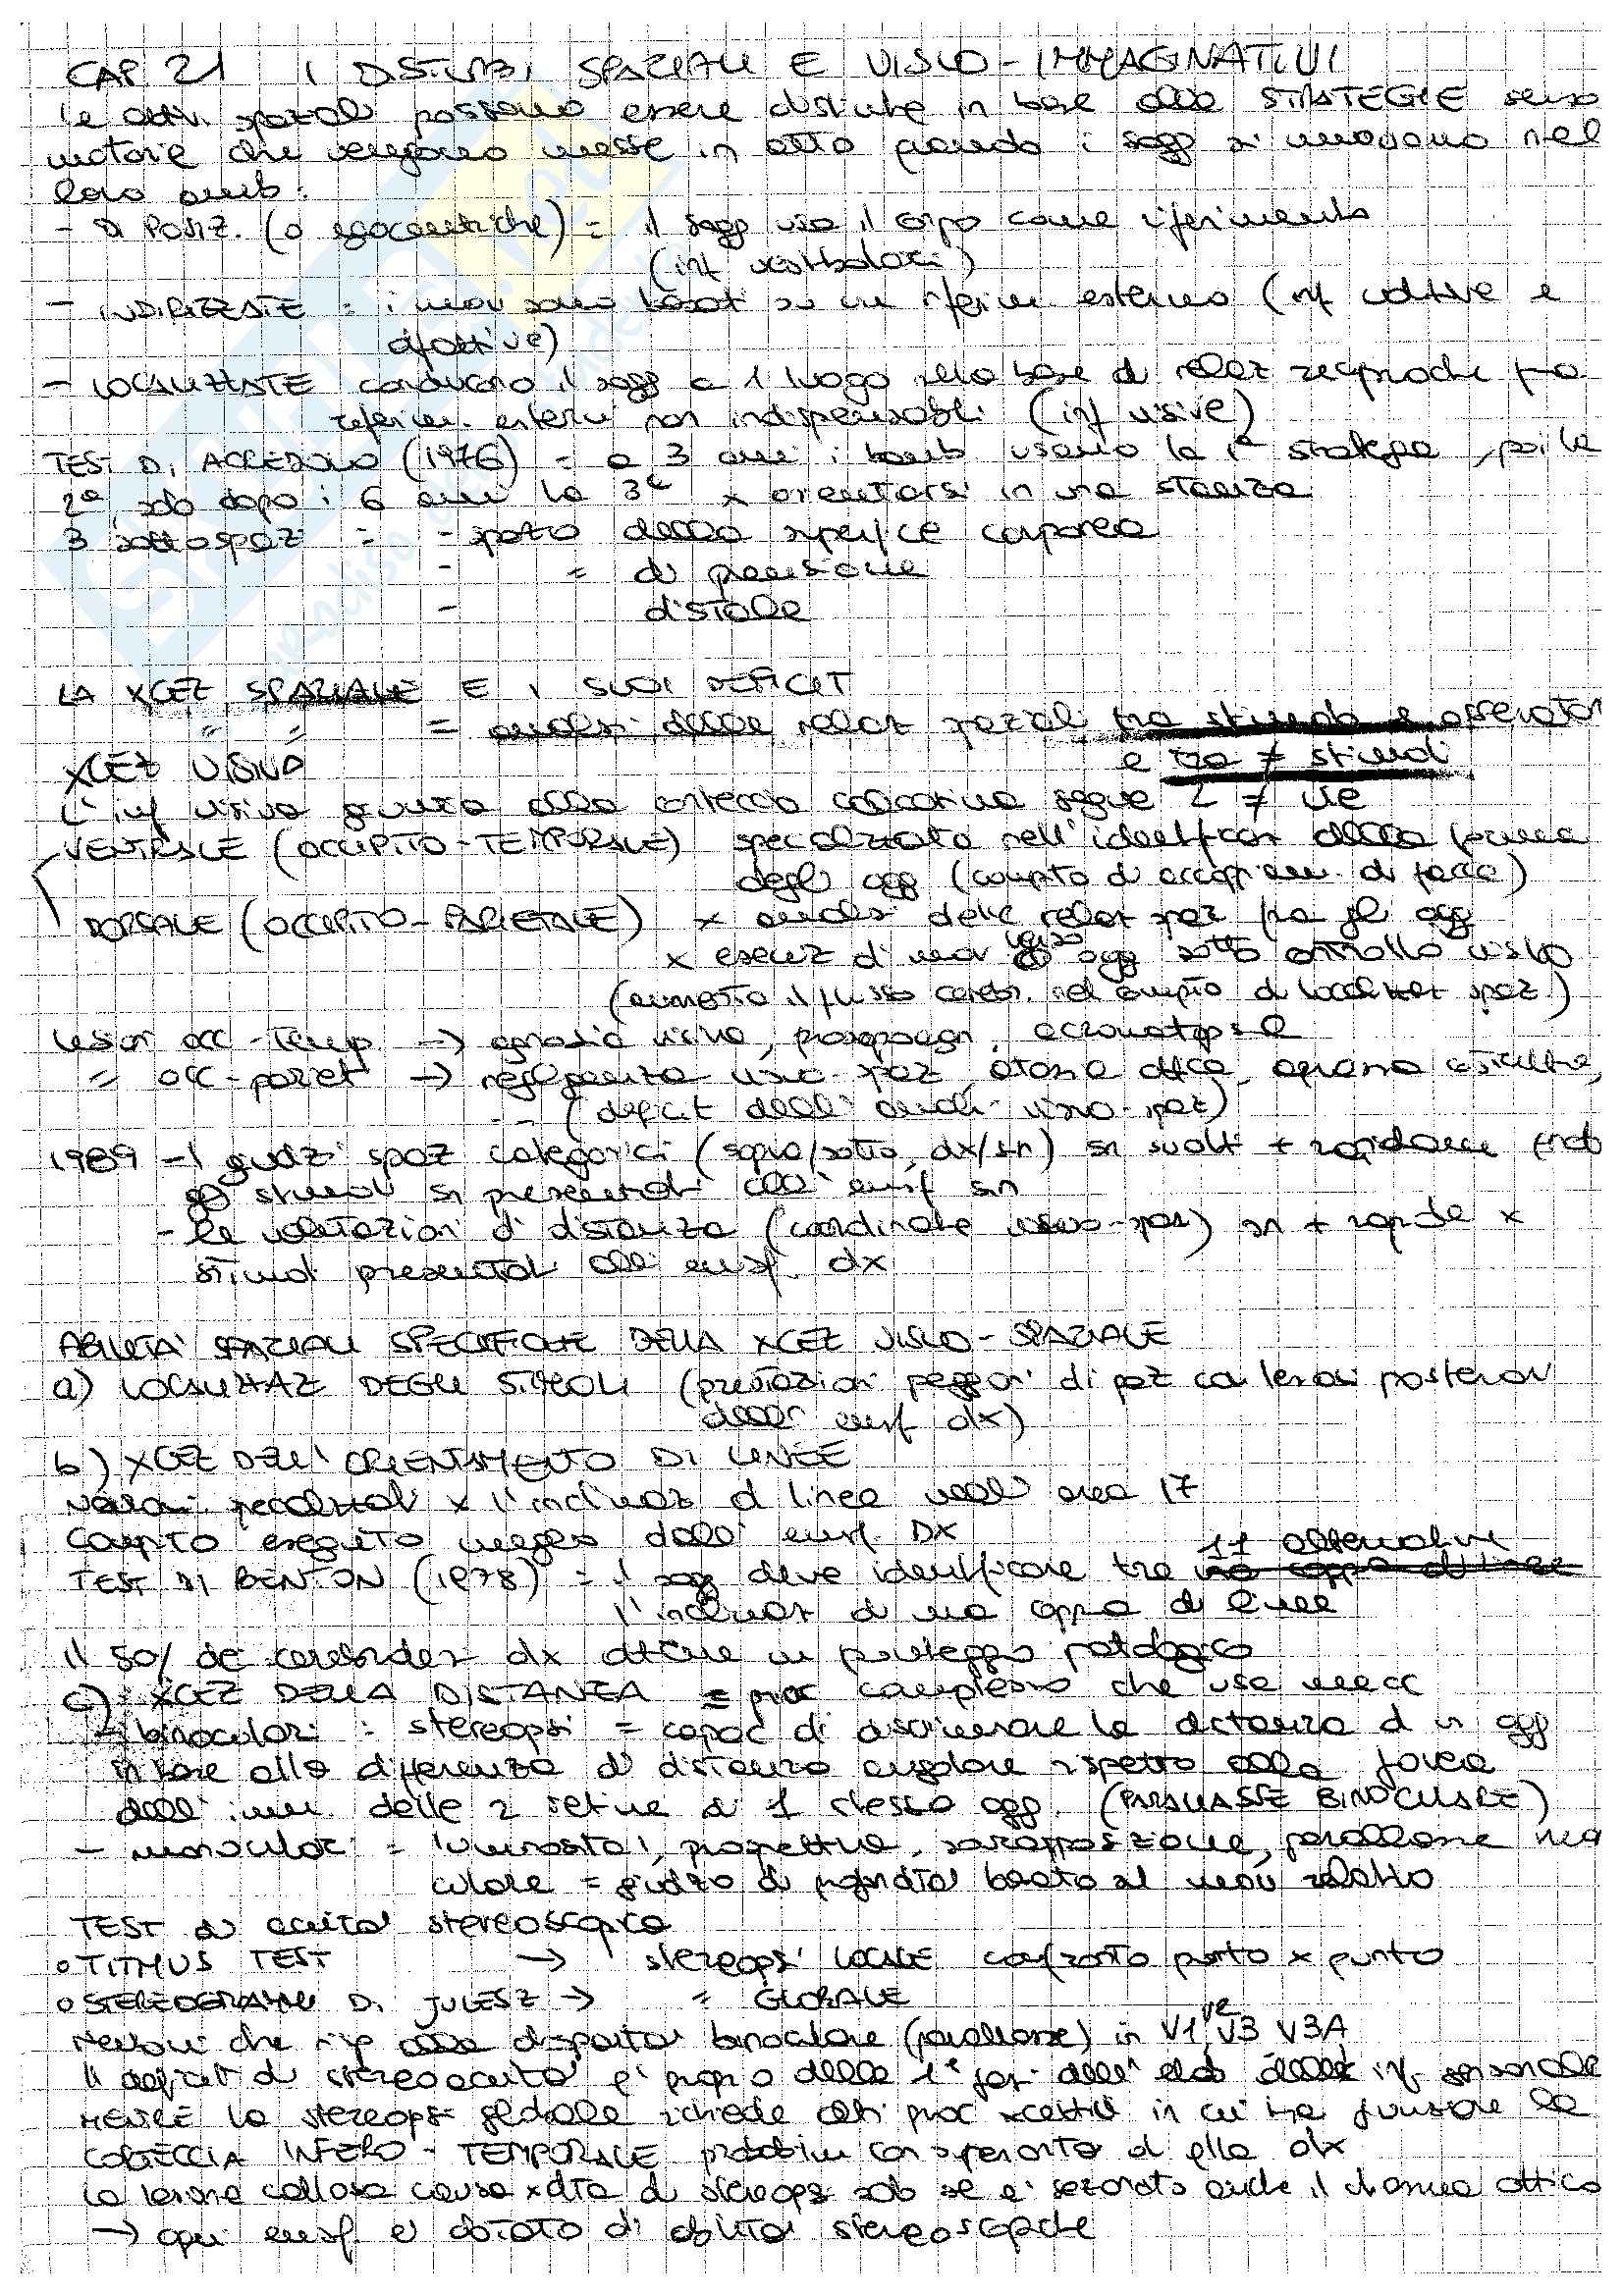 CAP. 21 I DISTURBI SPAZIALI E VISUO-IMMAGINATIVI
Le attiv. spaziali possono essere distinte in base alle STRATEGIE senso
motorie che vengono messe in atto quando i sogg si muovono nel
loro amb:
- DI POSIZ. (o egocentriche) = il sogg usa il corpo come riferimento
(inf vestibolari)
- INDIRIZZATE = i mov sono basati su un riferim esterno (inf uditive e
olfattive)
- LOCALIZZATE conducono il sogg a 1 luogo sulla base di relaz reciproche fra
riferim. esterni non indispensabili (inf visive)
TEST DI ACREDOLO (1976) = a 3 anni i bamb usano la 1ª strategia, poi la
2ª, solo dopo i 6 anni la 3ª x orientarsi in una stanza
3 sottospazi = - spazio della superficie corporea
- = di prensione
- distale
LA XCEZ SPAZIALE E I SUOI DEFICIT
" " = analisi delle relaz spaziali tra stimolo e osservator
e tra ≠ stimoli
XCEZ VISIVA
L'inf visiva giunta alla corteccia calcarina segue 2 ≠ vie
VENTRALE (OCCIPITO-TEMPORALE) specializzata nell'identificaz della forma
degli ogg (compito di accoppiam. di facce)
DORSALE (OCCIPITO-PARIETALE) x analisi delle relaz spaz fra gli ogg
x esecuz di mov verso ogg sotto controllo visivo
(aumenta il flusso cerebr. nel compito di localizzaz spaz.)
Lesioni occ-temp. → agnosia visiva, prosopoagn, acromatopsia
= occ-pariet → negligenza visuo-spaz, atassia ottica, aprassia costruttiva,
(deficit dell'analisi visuo-spaz)
1989 - I giudizi spaz categorici (sopra/sotto, dx/sn) sn svolti + rapidamente
gli stimoli sn presentati all'emisf sn
- le valutazioni di distanza (coordinate visuo-spaz) sn + rapide x
stimoli presentati all'emisf. dx
ABILITA' SPAZIALI SPECIFICHE DELLA XCEZ VISUO-SPAZIALE
a) LOCALIZZAZ DEGLI STIMOLI (prestazioni peggiori di paz con lesioni posteriori
dell'emisf dx)
b) XCEZ DELL'ORIENTAMENTO DI LINEE
Neuroni specializzati x l'inclinaz di linea nell'area 17
Compito eseguito meglio dall'emisf. DX
11 alternative
TEST DI BENTON (1978) = il sogg deve identificare tra una coppia di linee
l'inclinaz di una coppia di linee
Il 50% dei cerebrolesi dx ottiene un punteggio patologico
c) XCEZ DELLA DISTANZA = proc complesso che usa mecc
- binoculari = stereopsi = capac di discriminare la distanza di un ogg
in base alla differenza di distanza angolare rispetto alla fovea
dell'imm. delle 2 retine di 1 stesso ogg. (PARALLASSE BINOCULARE)
- monoculari = luminosità, prospettiva, sovrapposizione, parallasse mo
culare = giudizio di profondità basato sul mov relativo
TEST di acuità stereoscopica
o TITMUS TEST → stereopsi LOCALE confronto punto x punto
o STEREOGRAMMI DI JULESZ → = GLOBALE
Neuroni che risp alla disparità binoculare (parallasse) in V1, V2 V3 V3A
Il deficit di stereoacuità è proprio delle 1e fasi dell'elab delle inf sensoriale
MENTRE la stereopsi globale richiede altri proc xcettivi in cui ha funzione la
CORTECCIA INFERO-TEMPORALE probabilm con superiorità di quella dx
La lesione callosa causa xdita di stereopsi solo se è sezionato anche il chiasma ottico
→ ogni emisf. è dotato di abilità stereoscopiche